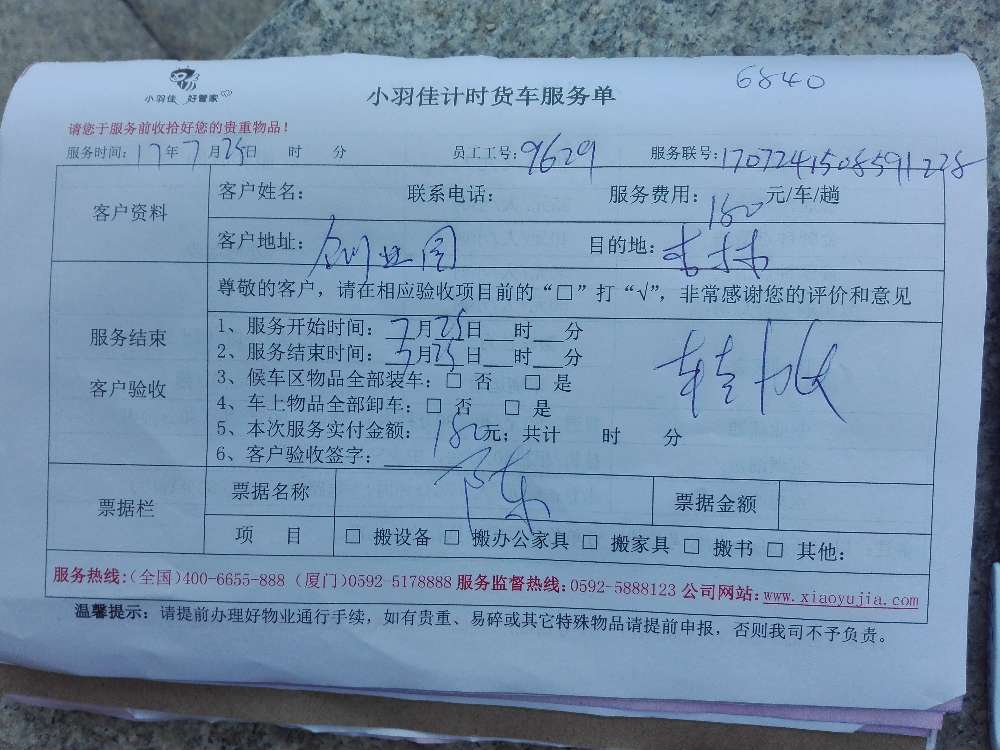 小羽佳 好管家
小羽佳计时货车服务单
6840
请您于服务前收拾好您的贵重物品！
服务时间：17年7月25日 时 分 员工工号：9629 服务联号：1707241508591228
客户资料
客户姓名： 联系电话： 服务费用：180元/车/趟
客户地址：创业园 目的地：
尊敬的客户，请在相应验收项目前的“□”打“√”，非常感谢您的评价和意见
服务结束
客户验收
1、服务开始时间：7月25日___时___分
2、服务结束时间：7月25日___时___分
3、候车区物品全部装车：□ 否 □ 是
4、车上物品全部卸车：□ 否 □ 是
5、本次服务实付金额：180元；共计 时 分
6、客户验收签字：
票据栏
票据名称 票据金额
项 目 □ 搬设备 □ 搬办公家具 □ 搬家具 □ 搬书 □ 其他：
服务热线：（全国）400-6655-888（厦门）0592-5178888 服务监督热线：0592-5888123 公司网站：www.xiaoyujia.com
温馨提示：请提前办理好物业通行手续，如有贵重、易碎或其它特殊物品请提前申报，否则我司不予负责。